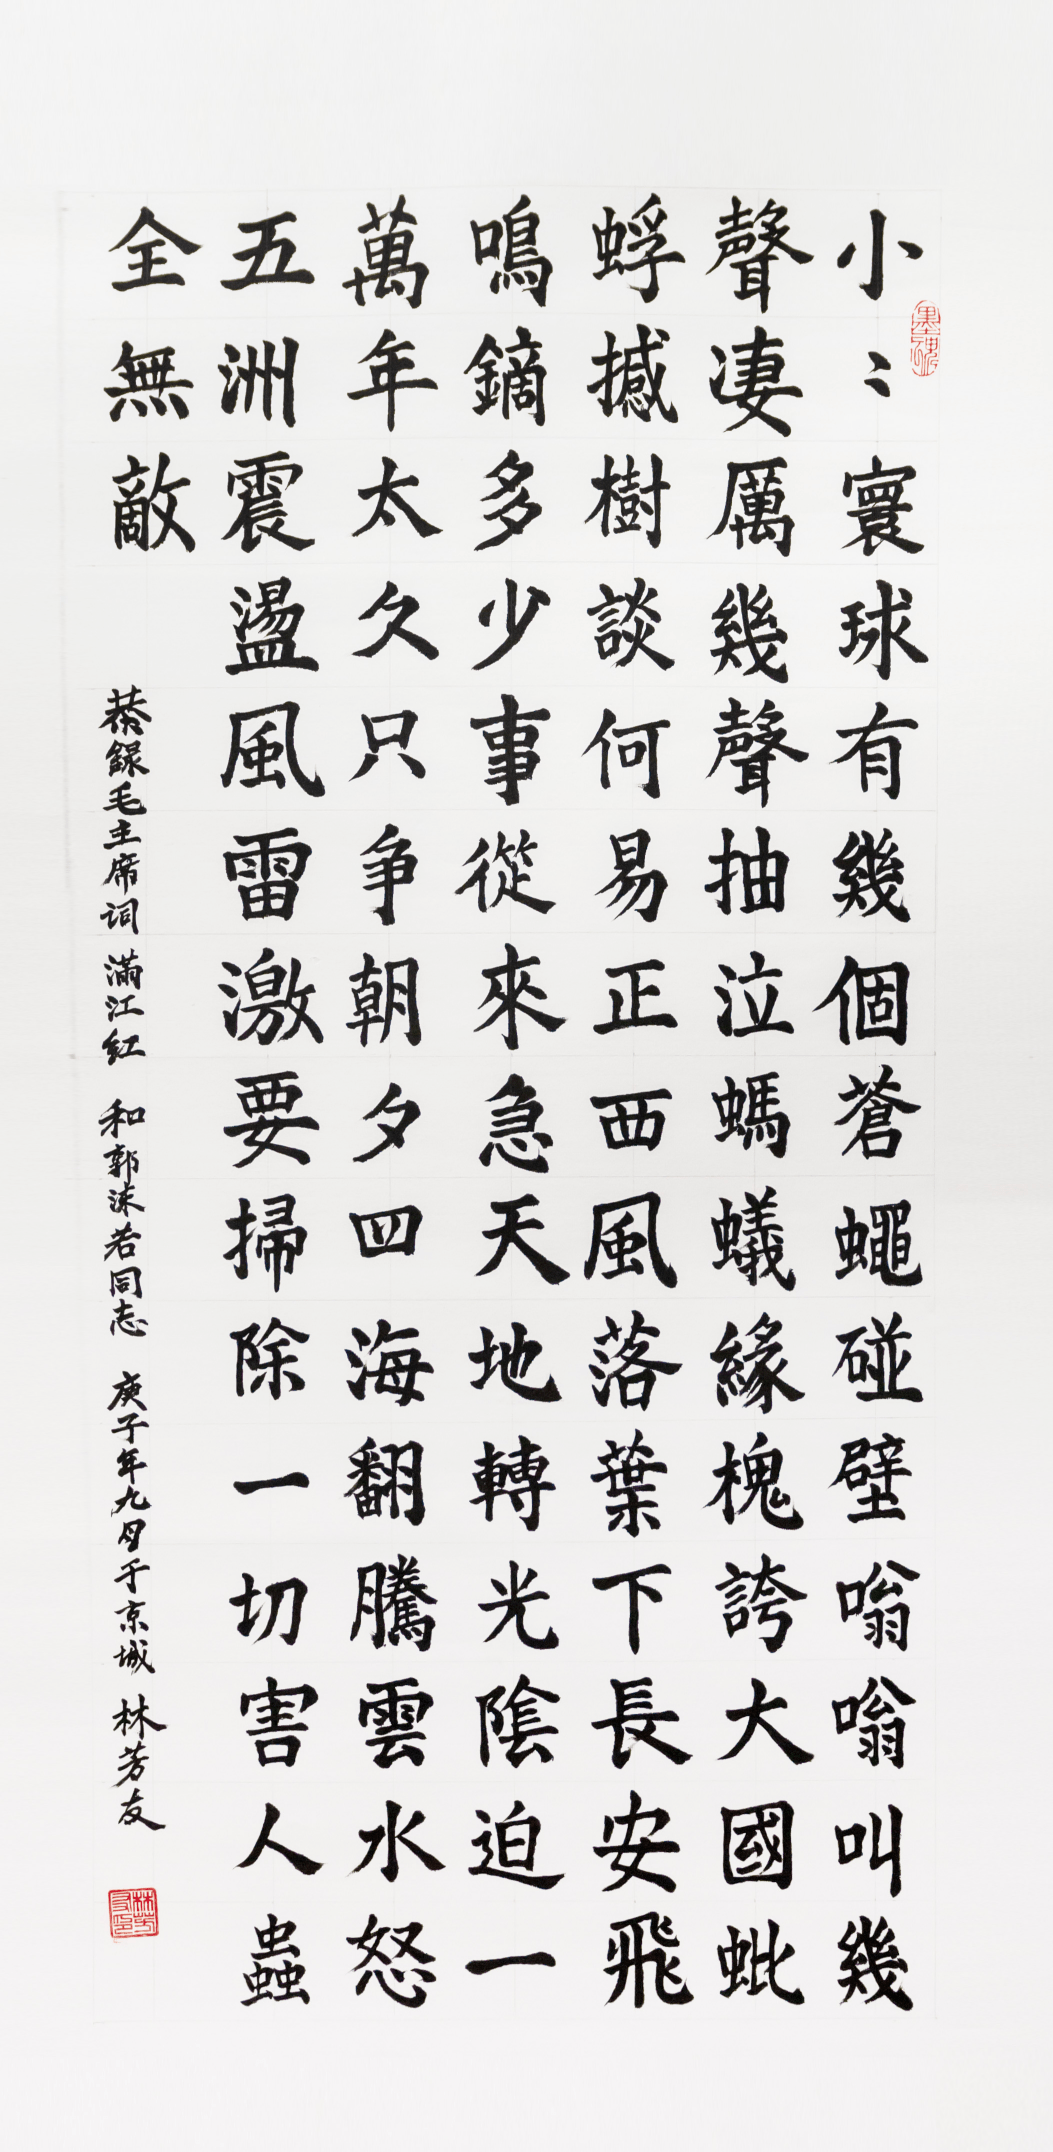 小〻寰球有幾個蒼蠅碰壁嗡嗡叫幾
聲凄厲幾聲抽泣螞蟻緣槐誇大國蚍
蜉撼樹談何易正西風落葉下長安飛
鳴鏑多少事從來急天地轉光陰迫一
萬年太久只争朝夕四海翻騰雲水怒
五洲震盪風雷激要掃除一切害人蟲
全無敵
恭録毛主席词 滿江红 和郭沫若同志 庚子年九月于京城 林芳友